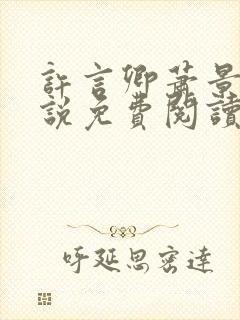 許言卿蕭景
說免費閱讀
呼延思密達